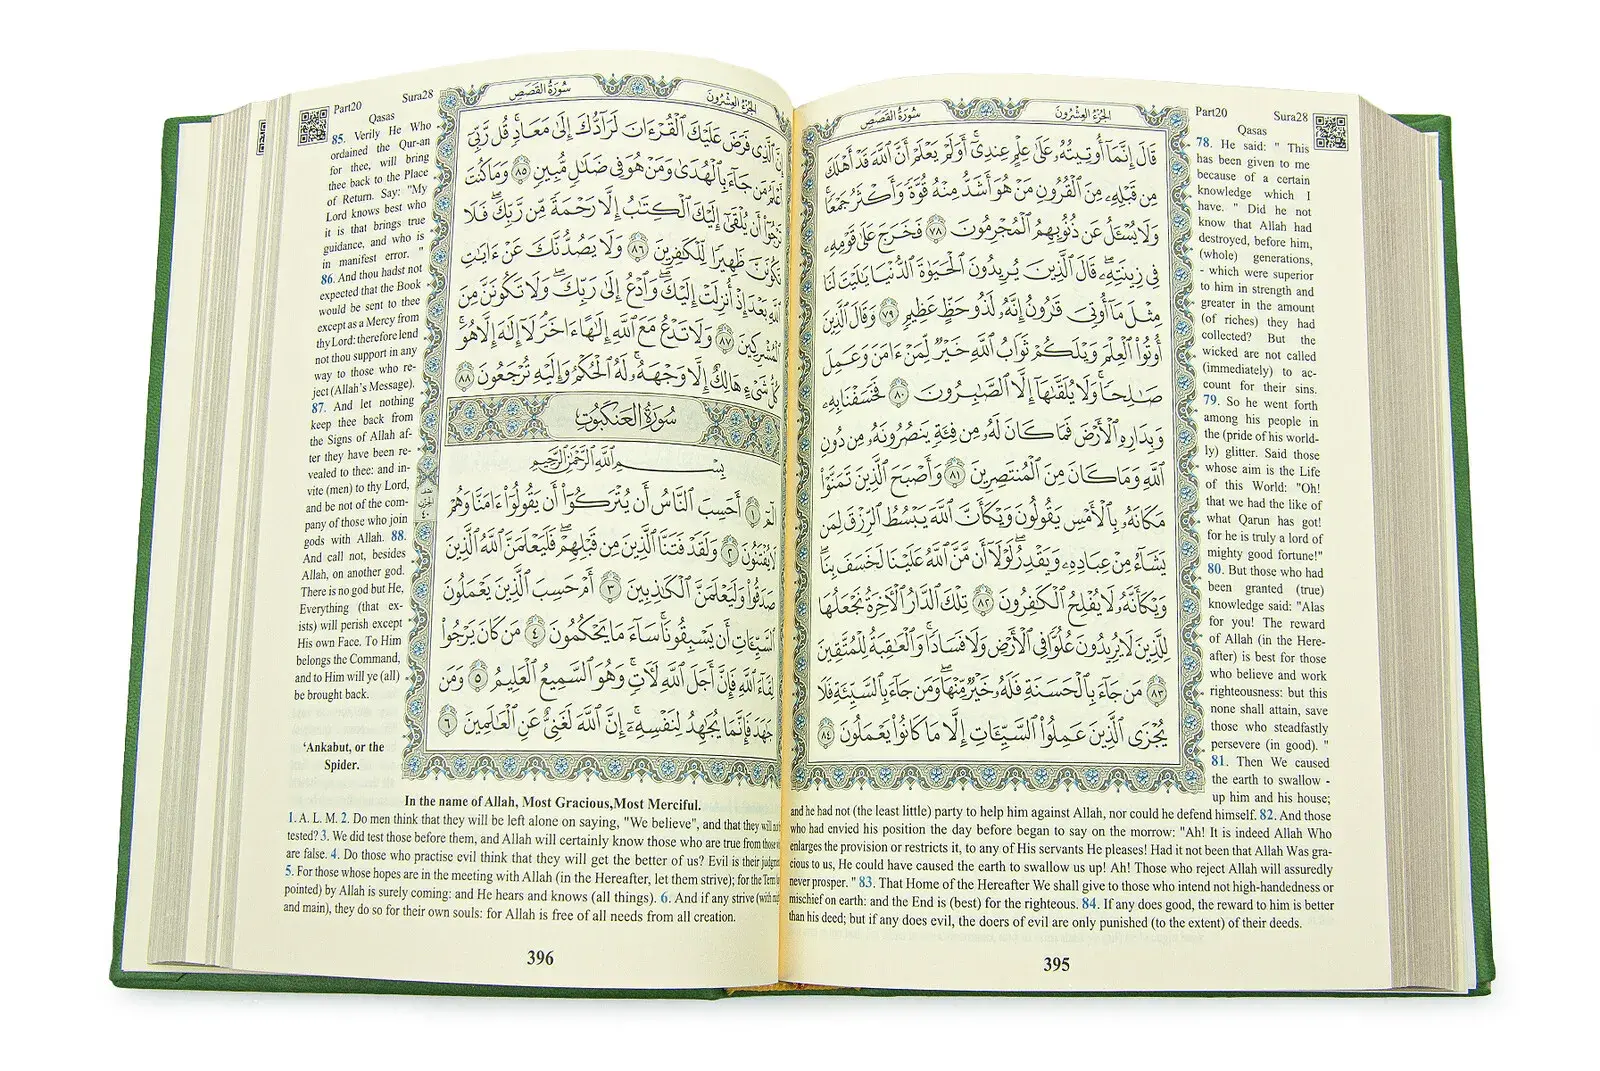 Part20 Sura28
Qasas
سُورَةُ القَصَصِ
الجُزْءُ العِشْرُونَ
قَالَ إِنَّمَآ أُوتِيتُهُۥ عَلَىٰ عِلْمٍ عِندِىٓ ۚ أَوَلَمْ يَعْلَمْ أَنَّ ٱللَّهَ قَدْ أَهْلَكَ
مِن قَبْلِهِۦ مِنَ ٱلْقُرُونِ مَنْ هُوَ أَشَدُّ مِنْهُ قُوَّةً وَأَكْثَرُ جَمْعًا ۚ
وَلَا يُسْـَٔلُ عَن ذُنُوبِهِمُ ٱلْمُجْرِمُونَ ٧٨ فَخَرَجَ عَلَىٰ قَوْمِهِۦ
فِى زِينَتِهِۦ ۖ قَالَ ٱلَّذِينَ يُرِيدُونَ ٱلْحَيَوٰةَ ٱلدُّنْيَا يَـٰلَيْتَ لَنَا
مِثْلَ مَآ أُوتِىَ قَـٰرُونُ إِنَّهُۥ لَذُو حَظٍّ عَظِيمٍ ٧٩ وَقَالَ ٱلَّذِينَ
أُوتُوا۟ ٱلْعِلْمَ وَيْلَكُمْ ثَوَابُ ٱللَّهِ خَيْرٌ لِّمَنْ ءَامَنَ وَعَمِلَ
صَـٰلِحًا ۚ وَلَا يُلَقَّىٰهَآ إِلَّا ٱلصَّـٰبِرُونَ ٨٠ فَخَسَفْنَا بِهِۦ
وَبِدَارِهِ ٱلْأَرْضَ فَمَا كَانَ لَهُۥ مِن فِئَةٍ يَنصُرُونَهُۥ مِن دُونِ
ٱللَّهِ وَمَا كَانَ مِنَ ٱلْمُنتَصِرِينَ ٨١ وَأَصْبَحَ ٱلَّذِينَ تَمَنَّوْا۟
مَكَانَهُۥ بِٱلْأَمْسِ يَقُولُونَ وَيْكَأَنَّ ٱللَّهَ يَبْسُطُ ٱلرِّزْقَ لِمَن
يَشَآءُ مِنْ عِبَادِهِۦ وَيَقْدِرُ ۖ لَوْلَآ أَن مَّنَّ ٱللَّهُ عَلَيْنَا لَخَسَفَ بِنَا ۖ
وَيْكَأَنَّهُۥ لَا يُفْلِحُ ٱلْكَـٰفِرُونَ ٨٢ تِلْكَ ٱلدَّارُ ٱلْـَٔاخِرَةُ نَجْعَلُهَا
لِلَّذِينَ لَا يُرِيدُونَ عُلُوًّا فِى ٱلْأَرْضِ وَلَا فَسَادًا ۚ وَٱلْعَـٰقِبَةُ لِلْمُتَّقِينَ
٨٣ مَن جَآءَ بِٱلْحَسَنَةِ فَلَهُۥ خَيْرٌ مِّنْهَا ۖ وَمَن جَآءَ بِٱلسَّيِّئَةِ فَلَا
يُجْزَى ٱلَّذِينَ عَمِلُوا۟ ٱلسَّيِّـَٔاتِ إِلَّا مَا كَانُوا۟ يَعْمَلُونَ ٨٤
78. He said: " This
has been given to me
because of a certain
knowledge which I
have. " Did he not
know that Allah had
destroyed, before him,
(whole) generations,
- which were superior
to him in strength and
greater in the amount
(of riches) they had
collected? But the
wicked are not called
(immediately) to ac-
count for their sins.
79. So he went forth
among his people in
the (pride of his world-
ly) glitter. Said those
whose aim is the Life
of this World: "Oh!
that we had the like of
what Qarun has got!
for he is truly a lord of
mighty good fortune!"
80. But those who had
been granted (true)
knowledge said: "Alas
for you! The reward
of Allah (in the Here-
after) is best for those
who believe and work
righteousness: but this
none shall attain, save
those who steadfastly
persevere (in good). "
81. Then We caused
the earth to swallow -
up him and his house;
and he had not (the least little) party to help him against Allah, nor could he defend himself. 82. And those
who had envied his position the day before began to say on the morrow: "Ah! It is indeed Allah Who
enlarges the provision or restricts it, to any of His servants He pleases! Had it not been that Allah Was gra-
cious to us, He could have caused the earth to swallow us up! Ah! Those who reject Allah will assuredly
never prosper. " 83. That Home of the Hereafter We shall give to those who intend not high-handedness or
mischief on earth: and the End is (best) for the righteous. 84. If any does good, the reward to him is better
than his deed; but if any does evil, the doers of evil are only punished (to the extent) of their deeds.
395
Part20 Sura28
Qasas
سُورَةُ القَصَصِ
الجُزْءُ العِشْرُونَ
إِنَّ ٱلَّذِى فَرَضَ عَلَيْكَ ٱلْقُرْءَانَ لَرَآدُّكَ إِلَىٰ مَعَادٍ ۚ قُل رَّبِّىٓ
أَعْلَمُ مَن جَآءَ بِٱلْهُدَىٰ وَمَنْ هُوَ فِى ضَلَـٰلٍ مُّبِينٍ ٨٥ وَمَا كُنتَ
تَرْجُوٓا۟ أَن يُلْقَىٰٓ إِلَيْكَ ٱلْكِتَـٰبُ إِلَّا رَحْمَةً مِّن رَّبِّكَ ۖ فَلَا
تَكُونَنَّ ظَهِيرًا لِّلْكَـٰفِرِينَ ٨٦ وَلَا يَصُدُّنَّكَ عَنْ ءَايَـٰتِ
ٱللَّهِ بَعْدَ إِذْ أُنزِلَتْ إِلَيْكَ ۖ وَٱدْعُ إِلَىٰ رَبِّكَ ۖ وَلَا تَكُونَنَّ مِنَ
ٱلْمُشْرِكِينَ ٨٧ وَلَا تَدْعُ مَعَ ٱللَّهِ إِلَـٰهًا ءَاخَرَ ۘ لَآ إِلَـٰهَ إِلَّا هُوَ ۚ
كُلُّ شَىْءٍ هَالِكٌ إِلَّا وَجْهَهُۥ ۚ لَهُ ٱلْحُكْمُ وَإِلَيْهِ تُرْجَعُونَ ٨٨
سُورَةُ العَنكَبُوتِ
بِسْمِ ٱللَّهِ ٱلرَّحْمَـٰنِ ٱلرَّحِيمِ
الٓمٓ ١ أَحَسِبَ ٱلنَّاسُ أَن يُتْرَكُوٓا۟ أَن يَقُولُوٓا۟ ءَامَنَّا وَهُمْ
لَا يُفْتَنُونَ ٢ وَلَقَدْ فَتَنَّا ٱلَّذِينَ مِن قَبْلِهِمْ ۖ فَلَيَعْلَمَنَّ ٱللَّهُ ٱلَّذِينَ
صَدَقُوا۟ وَلَيَعْلَمَنَّ ٱلْكَـٰذِبِينَ ٣ أَمْ حَسِبَ ٱلَّذِينَ يَعْمَلُونَ
ٱلسَّيِّـَٔاتِ أَن يَسْبِقُونَا ۚ سَآءَ مَا يَحْكُمُونَ ٤ مَن كَانَ يَرْجُوا۟
لِقَآءَ ٱللَّهِ فَإِنَّ أَجَلَ ٱللَّهِ لَـَٔاتٍ ۚ وَهُوَ ٱلسَّمِيعُ ٱلْعَلِيمُ ٥ وَمَن
جَـٰهَدَ فَإِنَّمَا يُجَـٰهِدُ لِنَفْسِهِۦٓ ۚ إِنَّ ٱللَّهَ لَغَنِىٌّ عَنِ ٱلْعَـٰلَمِينَ ٦
85. Verily He Who
ordained the Qur-an
for thee, will bring
thee back to the Place
of Return. Say: "My
Lord knows best who
it is that brings true
guidance, and who is
in manifest error. "
86. And thou hadst not
expected that the Book
would be sent to thee
except as a Mercy from
thy Lord: therefore lend
not thou support in any
way to those who re-
ject (Allah's Message).
87. And let nothing
keep thee back from
the Signs of Allah af-
ter they have been re-
vealed to thee: and in-
vite (men) to thy Lord,
and be not of the com-
pany of those who join
gods with Allah. 88.
And call not, besides
Allah, on another god.
There is no god but He,
Everything (that ex-
ists) will perish except
His own Face. To Him
belongs the Command,
and to Him will ye (all)
be brought back.
‘Ankabut, or the
Spider.
In the name of Allah, Most Gracious,Most Merciful.
1. A. L. M. 2. Do men think that they will be left alone on saying, "We believe", and that they will
tested? 3. We did test those before them, and Allah will certainly know those who are true from those
are false. 4. Do those who practise evil think that they will get the better of us? Evil is their
5. For those whose hopes are in the meeting with Allah (in the Hereafter, let them strive); for the Term
pointed) by Allah is surely coming: and He hears and knows (all things). 6. And if any strive (with
and main), they do so for their own souls: for Allah is free of all needs from all creation.
396